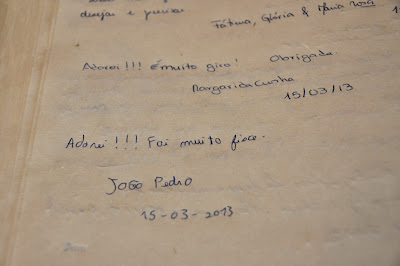 desejar e
Fátima, Glória & Maria
Adorei!!! É muito giro! Obrigada.
Margarida Cunha
15/03/13
Adorei!!! Foi muito
JOÃO PEDRO
15-03-2013